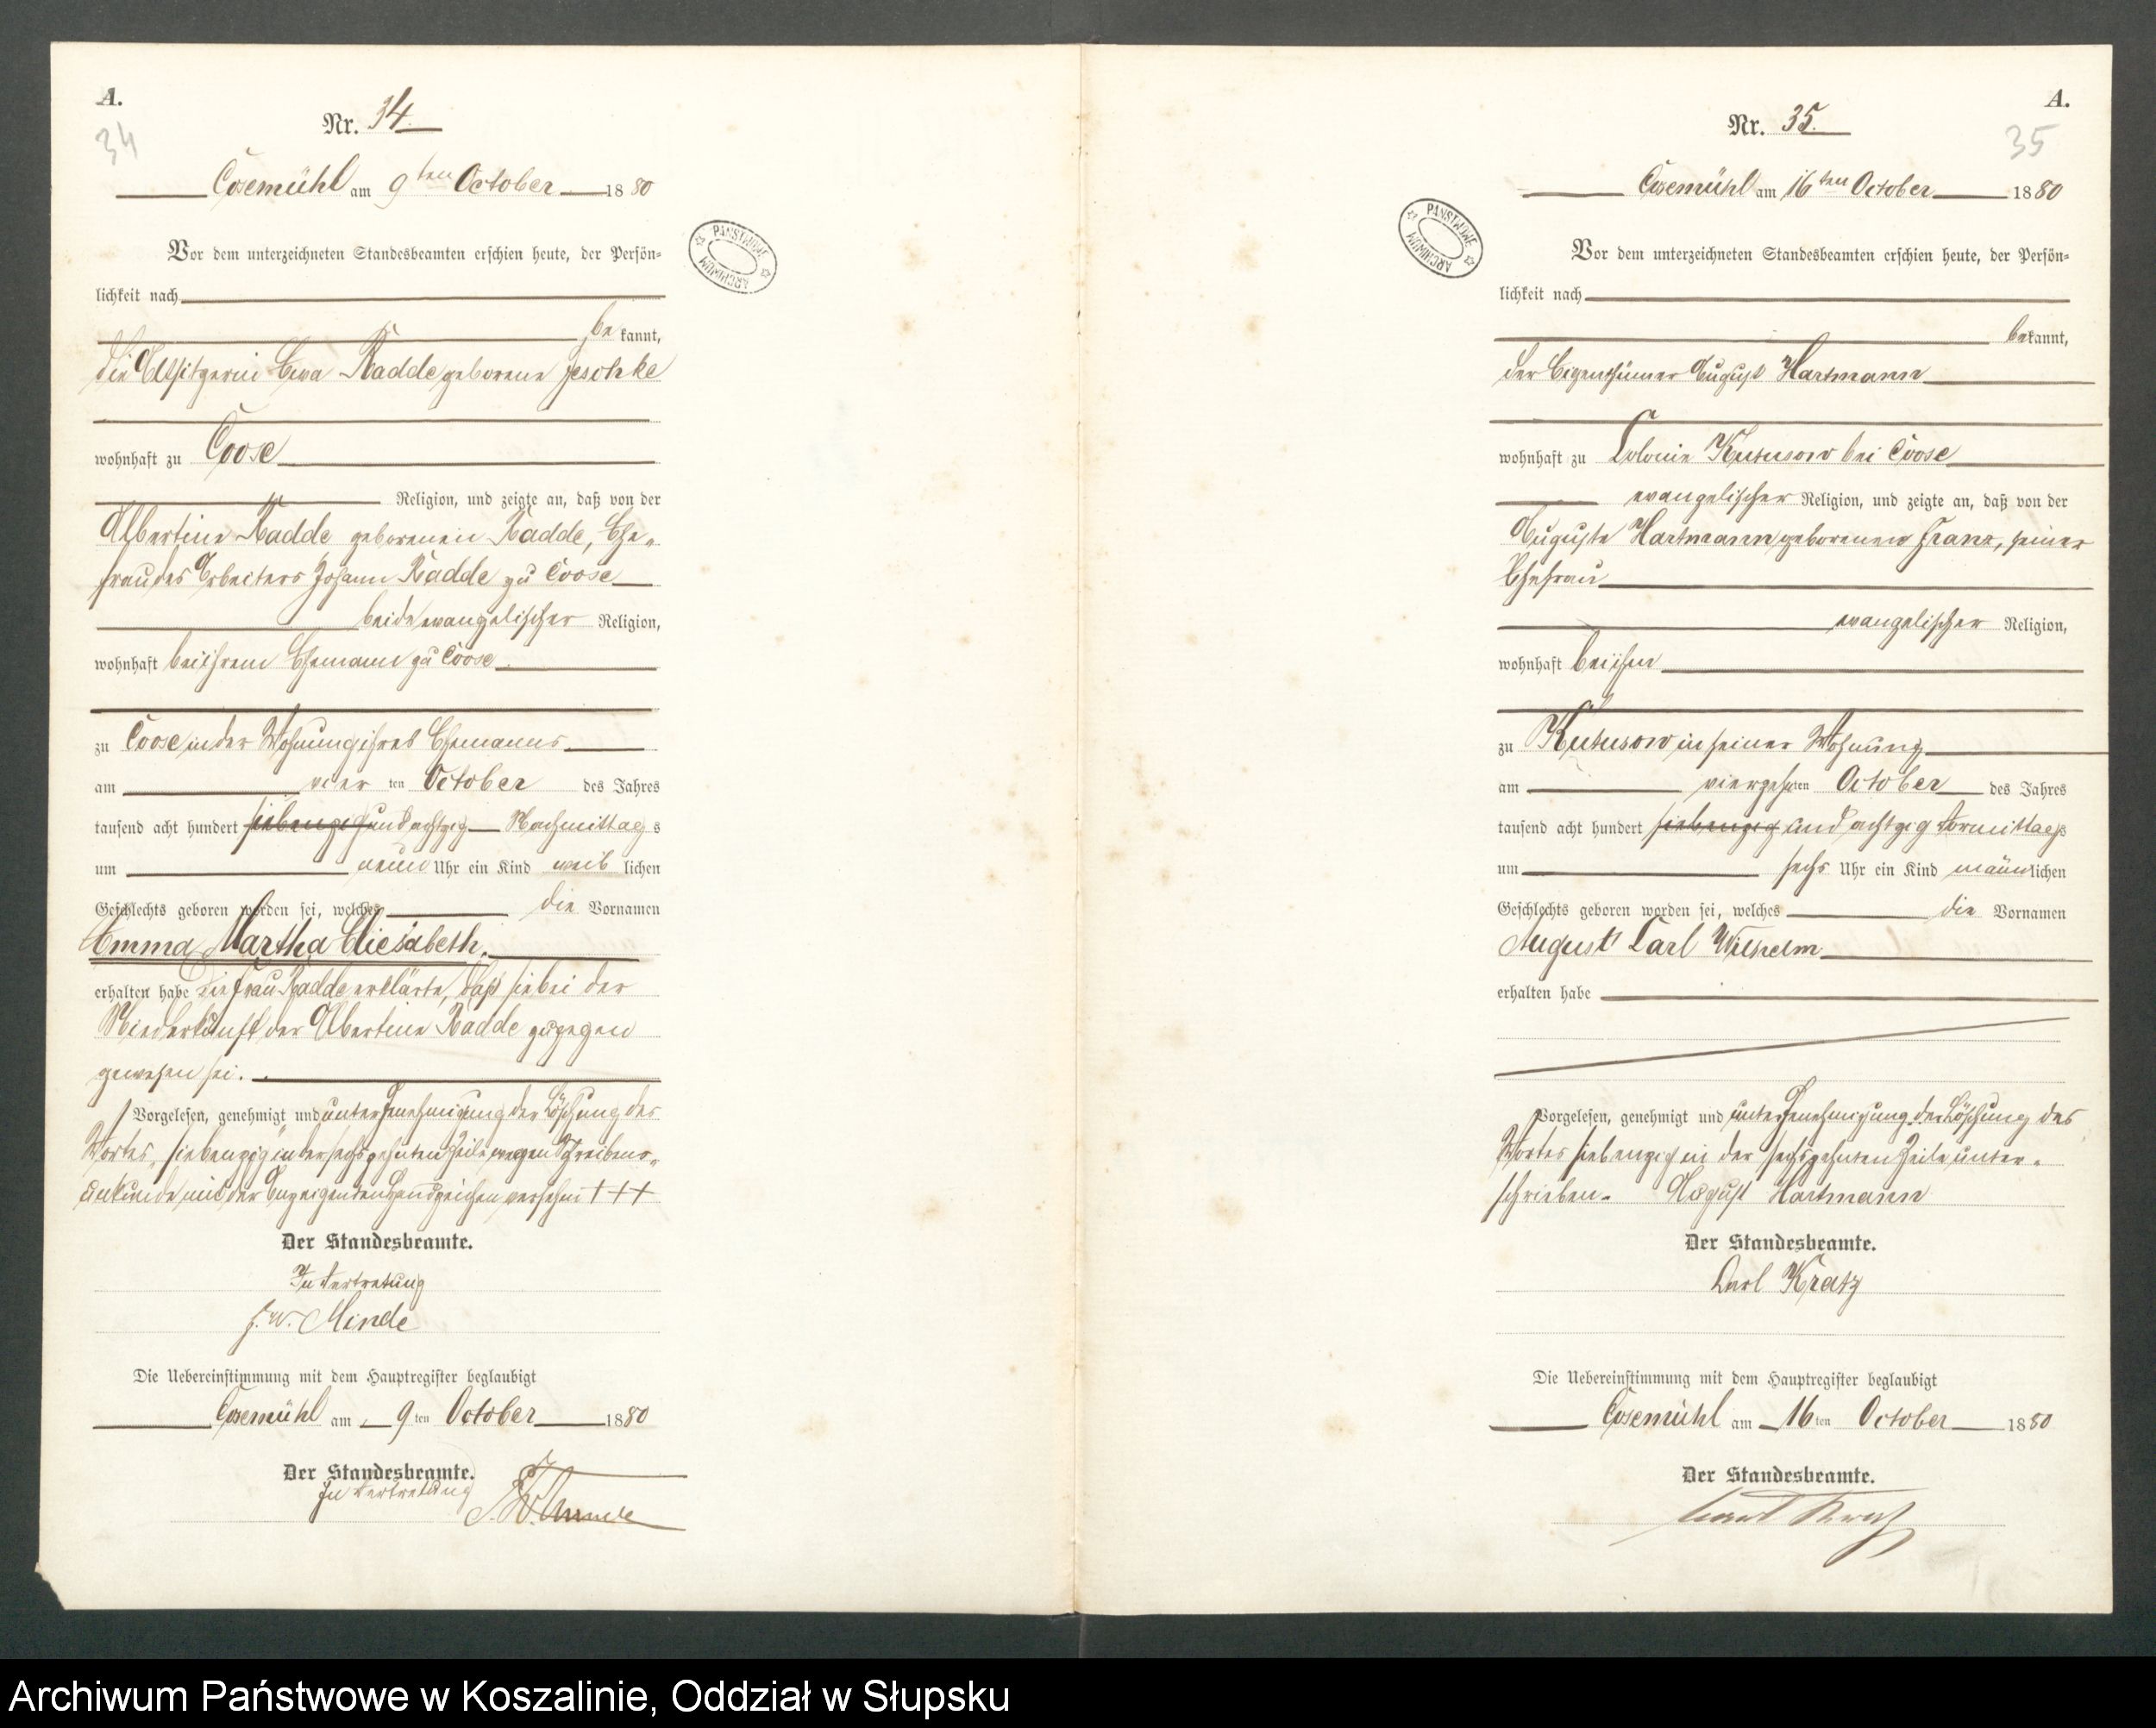 A.
34
Nr. 34.
Cosemühl am 9ten October 1880
Vor dem unterzeichneten Standesbeamten erschien heute, der Persön=
lichkeit nach
be kannt,
die Altsitzerin Ewa Radde geborene Jeschke
wohnhaft zu Coose
Religion, und zeigte an, daß von der
Albertine Radde geborenen Radde, Ehe„
frau des Arbeiters Johann Radde zu Coose
beide evangelischer Religion,
wohnhaft bei ihrem Ehemann zu Coose
zu Coose in der Wohnung ihres Ehemanns
am vier ten October des Jahres
tausend acht hundert siebenzig und achtzig Nachmittag s
um neun Uhr ein Kind weib lichen
Geschlechts geboren worden sei, welches die Vornamen
Emma Martha Eliesabeth.
erhalten habe Die Frau Radde erklärte, daß sie bei der
Niederkunft der Albertine Radde zugegen
gewesen sei.
Vorgelesen, genehmigt und unter Genehmigung der Löschung des
Wortes „siebenzig" in der sechszehnten Zeile wegen Schreibens„
unkunde mit der Anzeigenden Handzeichen versehen +++
Der Standesbeamte.
In Vertretung
F. W. Minde
Die Uebereinstimmung mit dem Hauptregister beglaubigt
Cosemühl am 9 ten October 1880
Der Standesbeamte.
In Vertretung
F. W. Minde
PAŃSTWOWE ARCHIWUM
A.
35
Nr. 35.
Cosemühl am 16ten October 1880
Vor dem unterzeichneten Standesbeamten erschien heute, der Persön=
lichkeit nach
bekannt,
der Eigenthümer August Hartmann
wohnhaft zu Colonie Kutusow bei Coose
evangelischer Religion, und zeigte an, daß von der
Auguste Hartmann geborenen Franz, seiner
Ehefrau
evangelischer Religion,
wohnhaft bei ihm
zu Kutusow in seiner Wohnung
am vierzehnten October des Jahres
tausend acht hundert siebenzig und achtzig Vormittags
um sechs Uhr ein Kind männlichen
Geschlechts geboren worden sei, welches die Vornamen
August Carl Wilhelm
erhalten habe
Vorgelesen, genehmigt und unter Genehmigung der Löschung des
Wortes siebenzig in der sechszehnten Zeile unter„
schrieben. August Hartmann
Der Standesbeamte.
Carl Kratz
Die Uebereinstimmung mit dem Hauptregister beglaubigt
Cosemühl am 16ten October 1880
Der Standesbeamte.
Carl Kratz
PAŃSTWOWE ARCHIWUM
Archiwum Państwowe w Koszalinie, Oddział w Słupsku